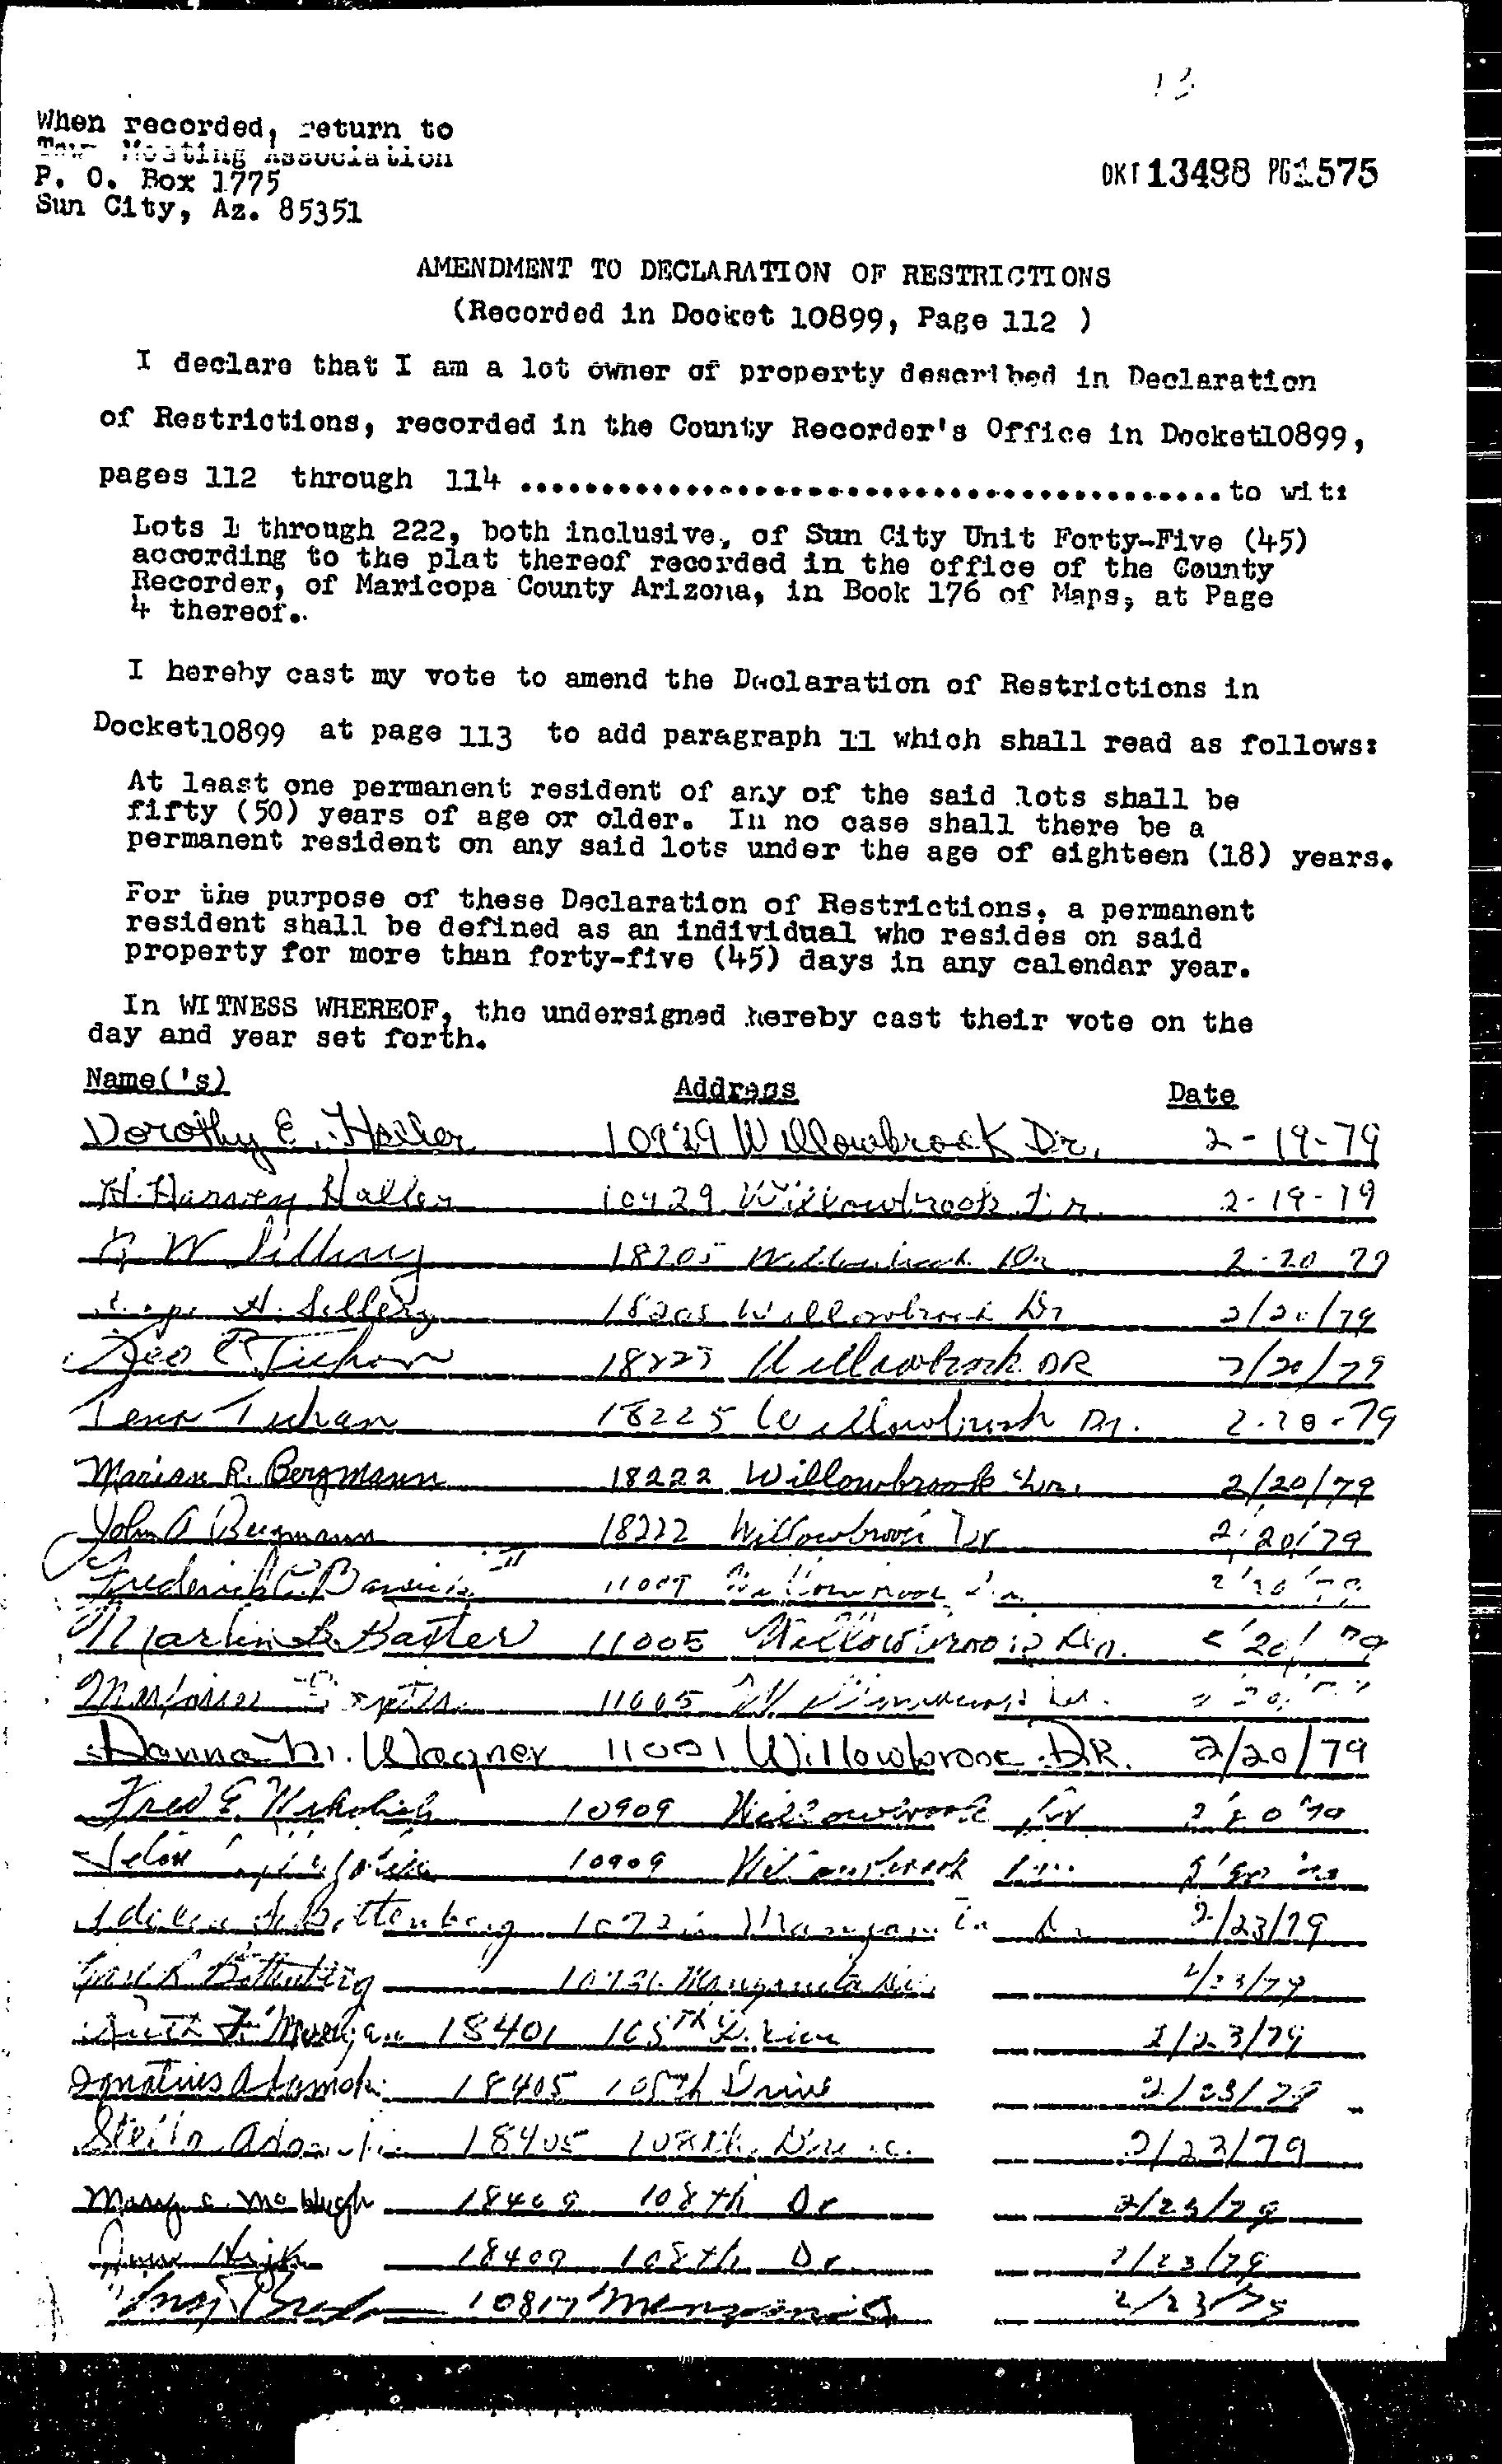 13
When recorded, return to
Town Meeting Association
P. O. Box 1775
Sun City, Az. 85351
DKT 13498 PG 1575
AMENDMENT TO DECLARATION OF RESTRICTIONS
(Recorded in Docket 10899, Page 112 )
I declare that I am a lot owner of property described in Declaration
of Restrictions, recorded in the County Recorder's Office in Docket10899,
pages 112 through 114 ...........................................to wit:
Lots 1 through 222, both inclusive, of Sun City Unit Forty-Five (45)
according to the plat thereof recorded in the office of the County
Recorder, of Maricopa County Arizona, in Book 176 of Maps, at Page
4 thereof.
I hereby cast my vote to amend the Declaration of Restrictions in
Docket10899 at page 113 to add paragraph 11 which shall read as follows:
At least one permanent resident of any of the said lots shall be
fifty (50) years of age or older. In no case shall there be a
permanent resident on any said lots under the age of eighteen (18) years.
For the purpose of these Declaration of Restrictions, a permanent
resident shall be defined as an individual who resides on said
property for more than forty-five (45) days in any calendar year.
In WITNESS WHEREOF, the undersigned hereby cast their vote on the
day and year set forth.
Name('s) Address Date
Dorothy E. Haller 10929 Willowbrook Dr. 2-19-79
H. Harvey Haller 10929 Willowbrook Dr. 2-19-79
W 18205 Willowbrook Dr 2-20 79
H. 18205 Willowbrook Dr 2/20/79
Geo 18225 Willowbrook DR 2/20/79
18225 Willowbrook Dr. 2-20-79
Marian R. Bergmann 18222 Willowbrook Dr. 2/20/79
John A Bergmann 18222 Willowbrook Dr 2/20/79
Frederick II 11009 2/20/79
Baxter 11005 Willowbrook Dr. 2/20/79
11005
Donna M. Wagner 11001 Willowbrook DR. 2/20/79
Fred E. 10909 Willowbrook Dr
10909 Willowbrook
Bottenberg Dr 2/23/79
Bottenberg Manzanita 2/23/79
18401 2/23/79
Ignatius Adamski 18405 108th Drive 2/23/79
Stella Adamski 18405 108th Drive 2/23/79
Mary McHugh 18409 108th Dr 2/23/79
18409 108th Dr 2/23/79
10817 Manzanita 2/23/79